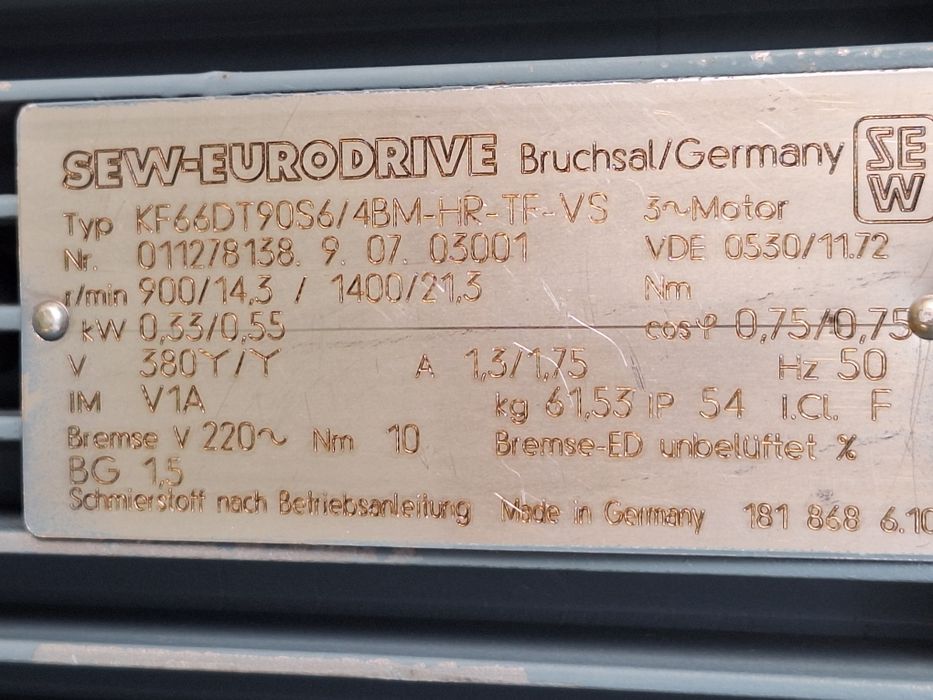 SEW-EURODRIVE Bruchsal/Germany SEW
Typ KF66DT90S6/4BM-HR-TF-VS 3~Motor
Nr. 011278138. 9. 07. 03001 VDE 0530/11.72
r/min 900/14,3 / 1400/21,3 Nm
kW 0,33/0,55 cosφ 0,75/0,75
V 380Y/Y A 1,3/1,75 Hz 50
IM V1A kg 61,53 IP 54 I.Cl. F
Bremse V 220~ Nm 10 Bremse-ED unbelüftet %
BG 1,5
Schmierstoff nach Betriebsanleitung Made in Germany 181 868 6.10